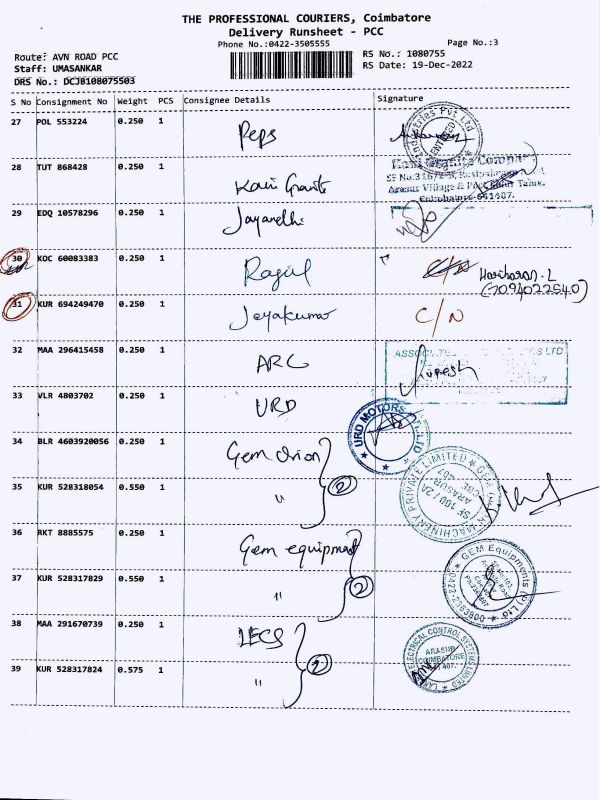 THE PROFESSIONAL COURIERS, Coimbatore
Delivery Runsheet - PCC
Phone No.:0422-3505555
Page No.:3
Route: AVN ROAD PCC
RS No.: 1080755
Staff: UMASANKAR
RS Date: 19-Dec-2022
DRS No.: DCJB108075503
S No Consignment No Weight PCS Consignee Details Signature
27 POL 553224 0.250 1 Peps
28 TUT 868428 0.250 1 Kani Granite
Kani Granite
29 EDQ 10578296 0.250 1
30 KOC 60083383 0.250 1 Ragul
Hariharan. L
(7094022540)
31 KUR 694249470 0.250 1 Jeyakumar C/N
32 MAA 296415458 0.250 1 ARC Rupesh
33 VLR 4803702 0.250 1 URD
URD MOTORS
34 BLR 4603920056 0.250 1 Gem
35 KUR 528318054 0.550 1 " 2
MACHINERY PRIVATE LIMITED
SF 100 / 2A
ARASUR
36 RKT 8885575 0.250 1 Gem equipment
GEM Equipments (P) Ltd
37 KUR 528317829 0.550 1 " 2
38 MAA 291670739 0.250 1 LECS
ELECTRICAL CONTROL SYSTEMS
ARASUR
COIMBATORE
39 KUR 528317824 0.575 1 " 2